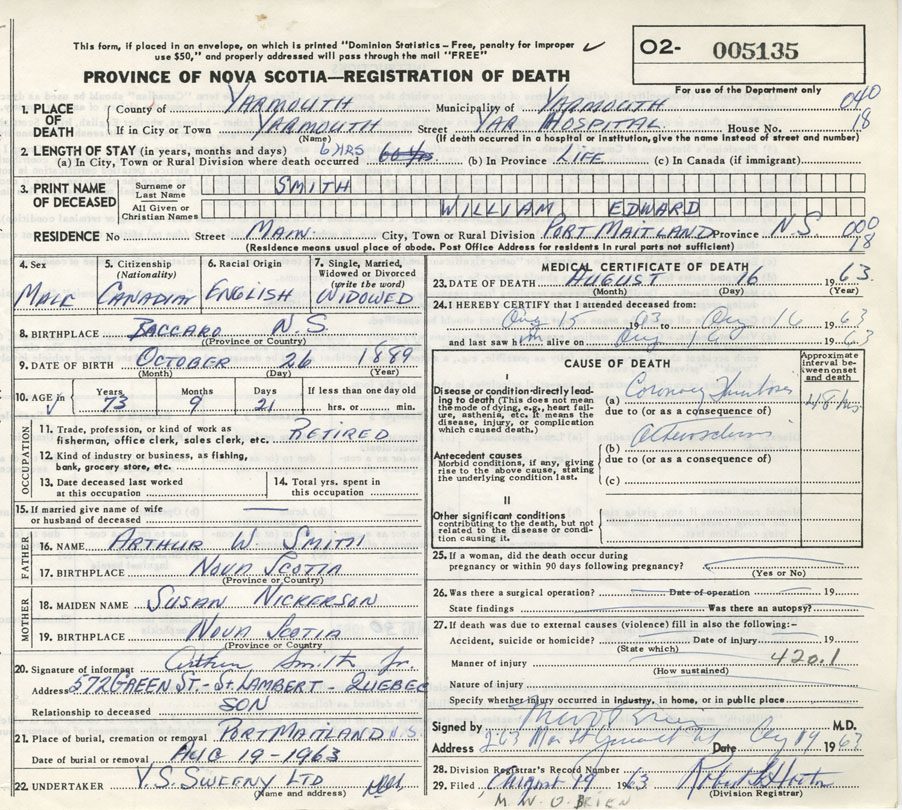 This form, if placed in an envelope, on which is printed "Dominion Statistics – Free, penalty for improper ✓
use $50," and properly addressed will pass through the mail "FREE"
O2- 005135
PROVINCE OF NOVA SCOTIA—REGISTRATION OF DEATH
For use of the Department only
1. PLACE OF DEATH County of YARMOUTH Municipality of YARMOUTH 040
If in City or Town YARMOUTH Street YAR HOSPITAL House No. 18
(Name) (If death occurred in a hospital or institution, give the name instead of street and number)
2. LENGTH OF STAY (in years, months and days) 6 HRS
(a) In City, Town or Rural Division where death occurred (b) In Province LIFE (c) In Canada (if immigrant)
3. PRINT NAME OF DECEASED Surname or Last Name SMITH
All Given or Christian Names WILLIAM EDWARD
RESIDENCE No Street MAIN City, Town or Rural Division PORT MAITLAND Province N.S. 000
(Residence means usual place of abode. Post Office Address for residents in rural parts not sufficient) 18
4. Sex 5. Citizenship (Nationality) 6. Racial Origin 7. Single, Married, Widowed or Divorced (write the word)
MALE CANADIAN ENGLISH WIDOWED
8. BIRTHPLACE BACCARO N.S.
(Province or Country)
9. DATE OF BIRTH OCTOBER 26 1889
(Month) (Day) (Year)
10. AGE in Years Months Days If less than one day old
73 9 21 hrs. or min.
OCCUPATION
11. Trade, profession, or kind of work as fisherman, office clerk, sales clerk, etc. RETIRED
12. Kind of industry or business, as fishing, bank, grocery store, etc.
13. Date deceased last worked at this occupation
14. Total yrs. spent in this occupation
15. If married give name of wife or husband of deceased
FATHER
16. NAME ARTHUR W. SMITH
17. BIRTHPLACE NOVA SCOTIA
(Province or Country)
MOTHER
18. MAIDEN NAME SUSAN NICKERSON
19. BIRTHPLACE NOVA SCOTIA
(Province or Country)
20. Signature of informant Arthur Smith Jr.
Address 572 GREEN ST. - ST. LAMBERT - QUEBEC
Relationship to deceased SON
21. Place of burial, cremation or removal PORT MAITLAND N.S.
Date of burial or removal AUG 19 - 1963
22. UNDERTAKER V.S. SWEENY LTD
(Name and address)
MEDICAL CERTIFICATE OF DEATH
23. DATE OF DEATH AUGUST 16 1963
(Month) (Day) (Year)
24. I HEREBY CERTIFY that I attended deceased from:
Aug 15 1963 to Aug 16 1963
and last saw him alive on Aug 16 1963
CAUSE OF DEATH
Approximate interval between onset and death
I
Disease or condition directly leading to death (This does not mean the mode of dying, e.g., heart failure, asthenia, etc. It means the disease, injury, or complication which caused death.)
(a) Coronary Thrombosis 48 hrs
due to (or as a consequence of)
Antecedent causes
Morbid conditions, if any, giving rise to the above cause, stating the underlying condition last.
(b)
due to (or as a consequence of)
(c)
II
Other significant conditions
contributing to the death, but not related to the disease or condition causing it.
25. If a woman, did the death occur during pregnancy or within 90 days following pregnancy?
(Yes or No)
26. Was there a surgical operation? Date of operation 19
State findings Was there an autopsy?
27. If death was due to external causes (violence) fill in also the following:–
Accident, suicide or homicide? Date of injury 19
(State which)
Manner of injury 420.1
(How sustained)
Nature of injury
Specify whether injury occurred in industry, in home, or in public place
Signed by M.D.
Address 263 Main St Date Aug 19 1963
28. Division Registrar's Record Number
29. Filed August 19 1963
(Division Registrar)
M. W. O'BRIEN